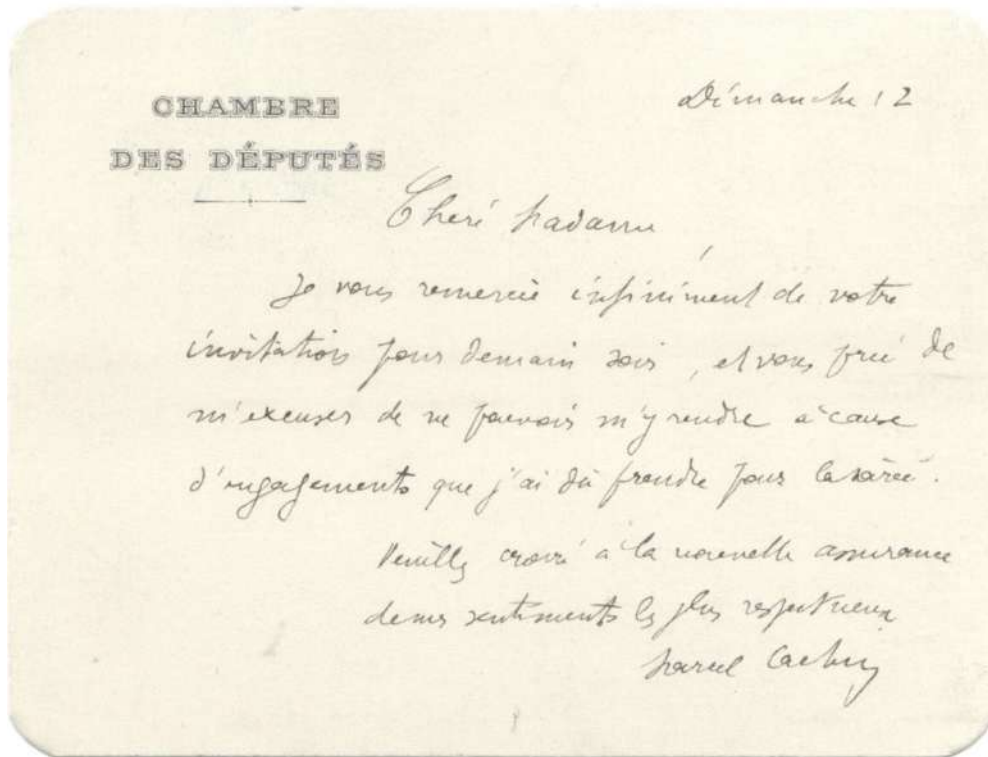 CHAMBRE
DES DÉPUTÉS
Dimanche 12
Chère Madame,
Je vous remercie infiniment de votre
invitation pour demain soir, et vous prie de
m'excuser de ne pouvoir m'y rendre à cause
d'engagements que j'ai dû prendre pour la soirée.
Veuillez croire à la nouvelle assurance
de mes sentiments les plus respectueux
Marcel Cachin